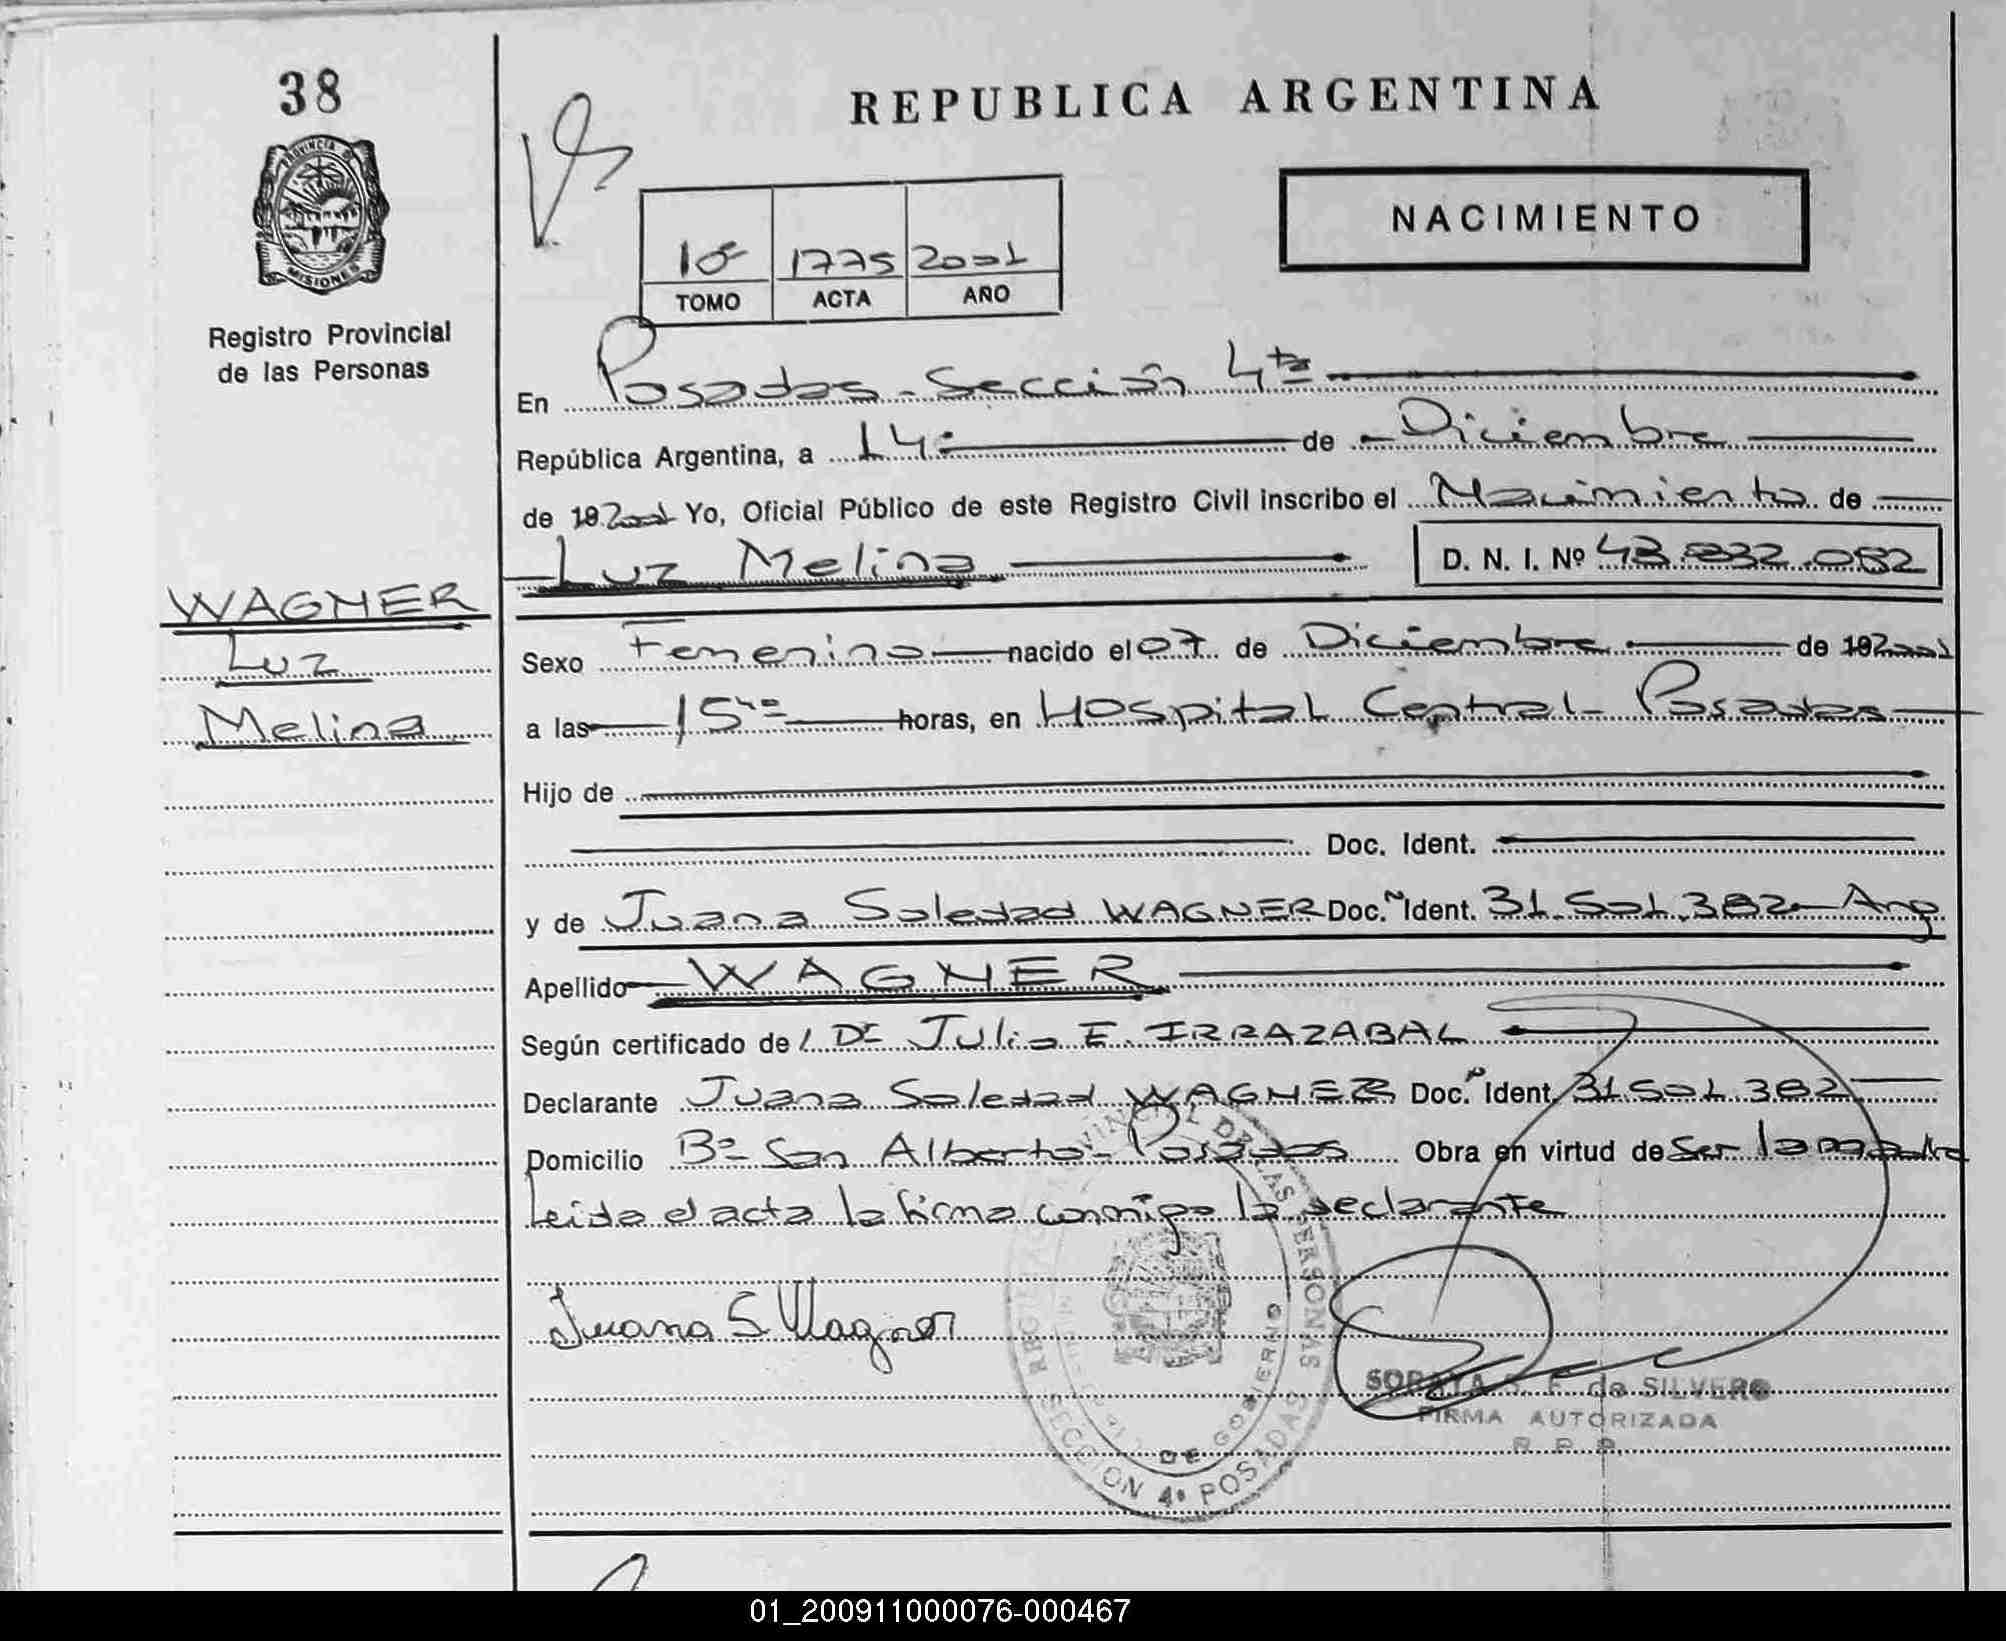 38
REPUBLICA ARGENTINA
PROVINCIA DE
MISIONES
NACIMIENTO
1775 2001
TOMO ACTA AÑO
Registro Provincial
de las Personas
En Posadas - Sección 4ta
República Argentina, a 14 de Diciembre
de 192001 Yo, Oficial Público de este Registro Civil inscribo el Nacimiento de
Luz Melina D. N. I. Nº 43.832.082
WAGNER
Luz
Melina
Sexo Femenino nacido el 07 de Diciembre de 192001
a las 15 40 horas, en Hospital Central - Posadas
Hijo de
Doc. Ident.
y de Juana Soledad WAGNER Doc. N Ident. 31.501.382 - Arg
Apellido WAGNER
Según certificado de / Dr Julio E. IRRAZABAL
Declarante Juana Soledad WAGNER Doc. N Ident. 31501.382
Domicilio Bº San Alberto - Posadas Obra en virtud de ser la madre
Leida el acta la firma conmigo la declarante
Juana S Wagner
REGISTRO PROVINCIAL DE LAS PERSONAS
DE GOBIERNO
SECCION 4ª POSADAS
SORAYA S. F. de SILVERO
FIRMA AUTORIZADA
R. P. P.
01_200911000076-000467